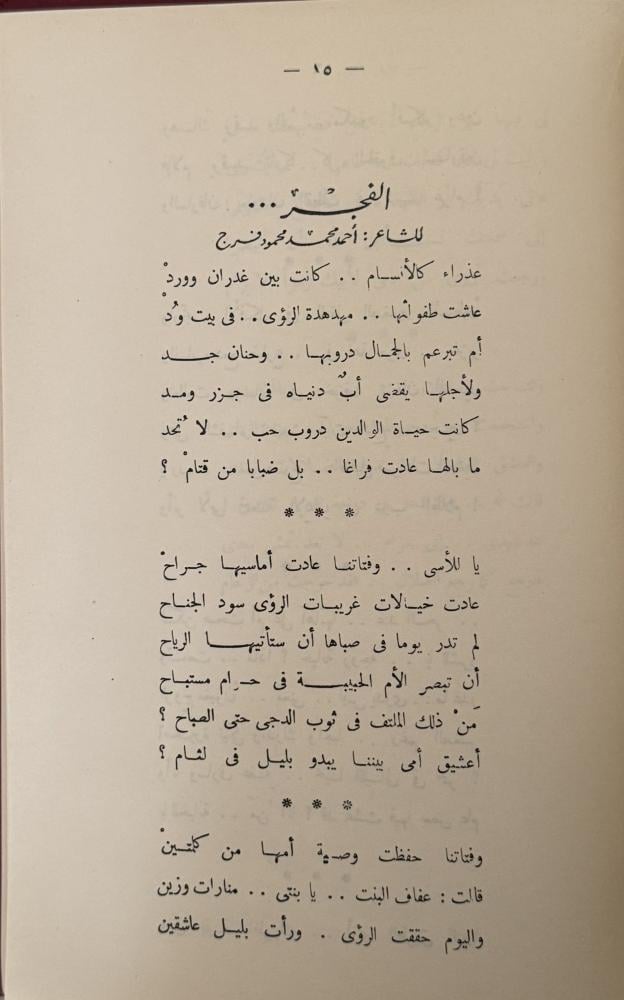 — ١٥ —
الفجر ...
للشاعر : أحمد محمد محمود فرج
عذراء كالأنسام .. كانت بين غدران ووردْ
عاشت طفولتها .. مهدهدة الرؤى .. فى بيت وُدْ
أم تبرعم بالجمال دروبها .. وحنان جد
ولأجلها يقضى أبٌ دنياه فى جزر ومد
كانت حياة الوالدين دروب حب .. لا تُحد
ما بالها عادت فراغا .. بل ضبابا من قتامْ ؟
* * *
يا للأسى .. وفتاتنا عادت أماسيها جراحْ
عادت خيالات غريبات الرؤى سود الجناح
لم تدر يوما فى صباها أن ستأتيها الرياح
أن تبصر الأم الحبيبة فى حرام مستباح
مَنْ ذلك الملتف فى ثوب الدجى حتى الصباح ؟
أعشيق أمى بيننا يبدو بليل فى لثام ؟
* * *
وفتاتنا حفظت وصية أمها من كلمتينْ
قالت : عفاف البنت .. يا بنتى .. منارات وزين
واليوم حققت الرؤى . ورأت بليل عاشقين